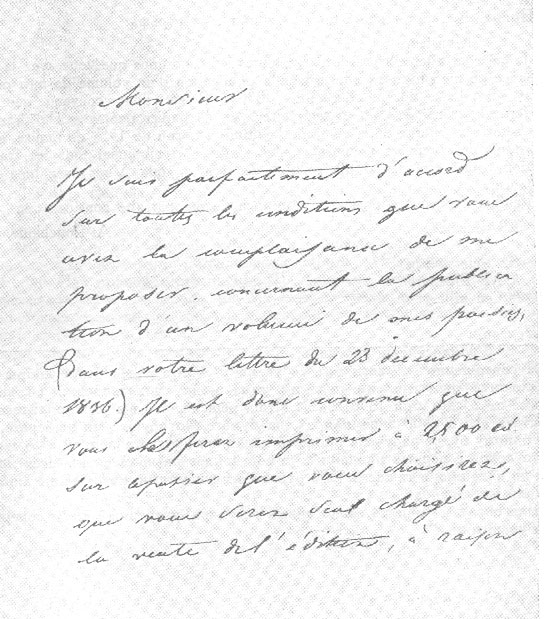 Monsieur
Je suis parfaitement d'accord
sur toutes les conditions que vous
avez la complaisance de me
proposer, concernant la publica
tion d'un volume de mes poesies,
(dans votre lettre du 23 decembre
1836.) Je est donc convenu que
vous les ferez imprimer à 2,500 ex
sur papier que vous choisirez,
que vous serez seul chargé de
la vente de l'édition, à raison